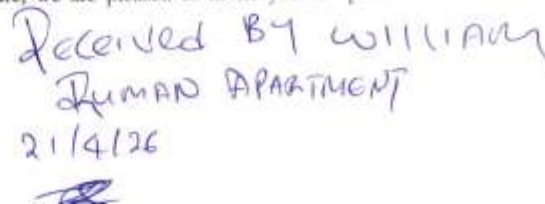 Received By WILLIAM
RUMAN APARTMENT
21/4/26